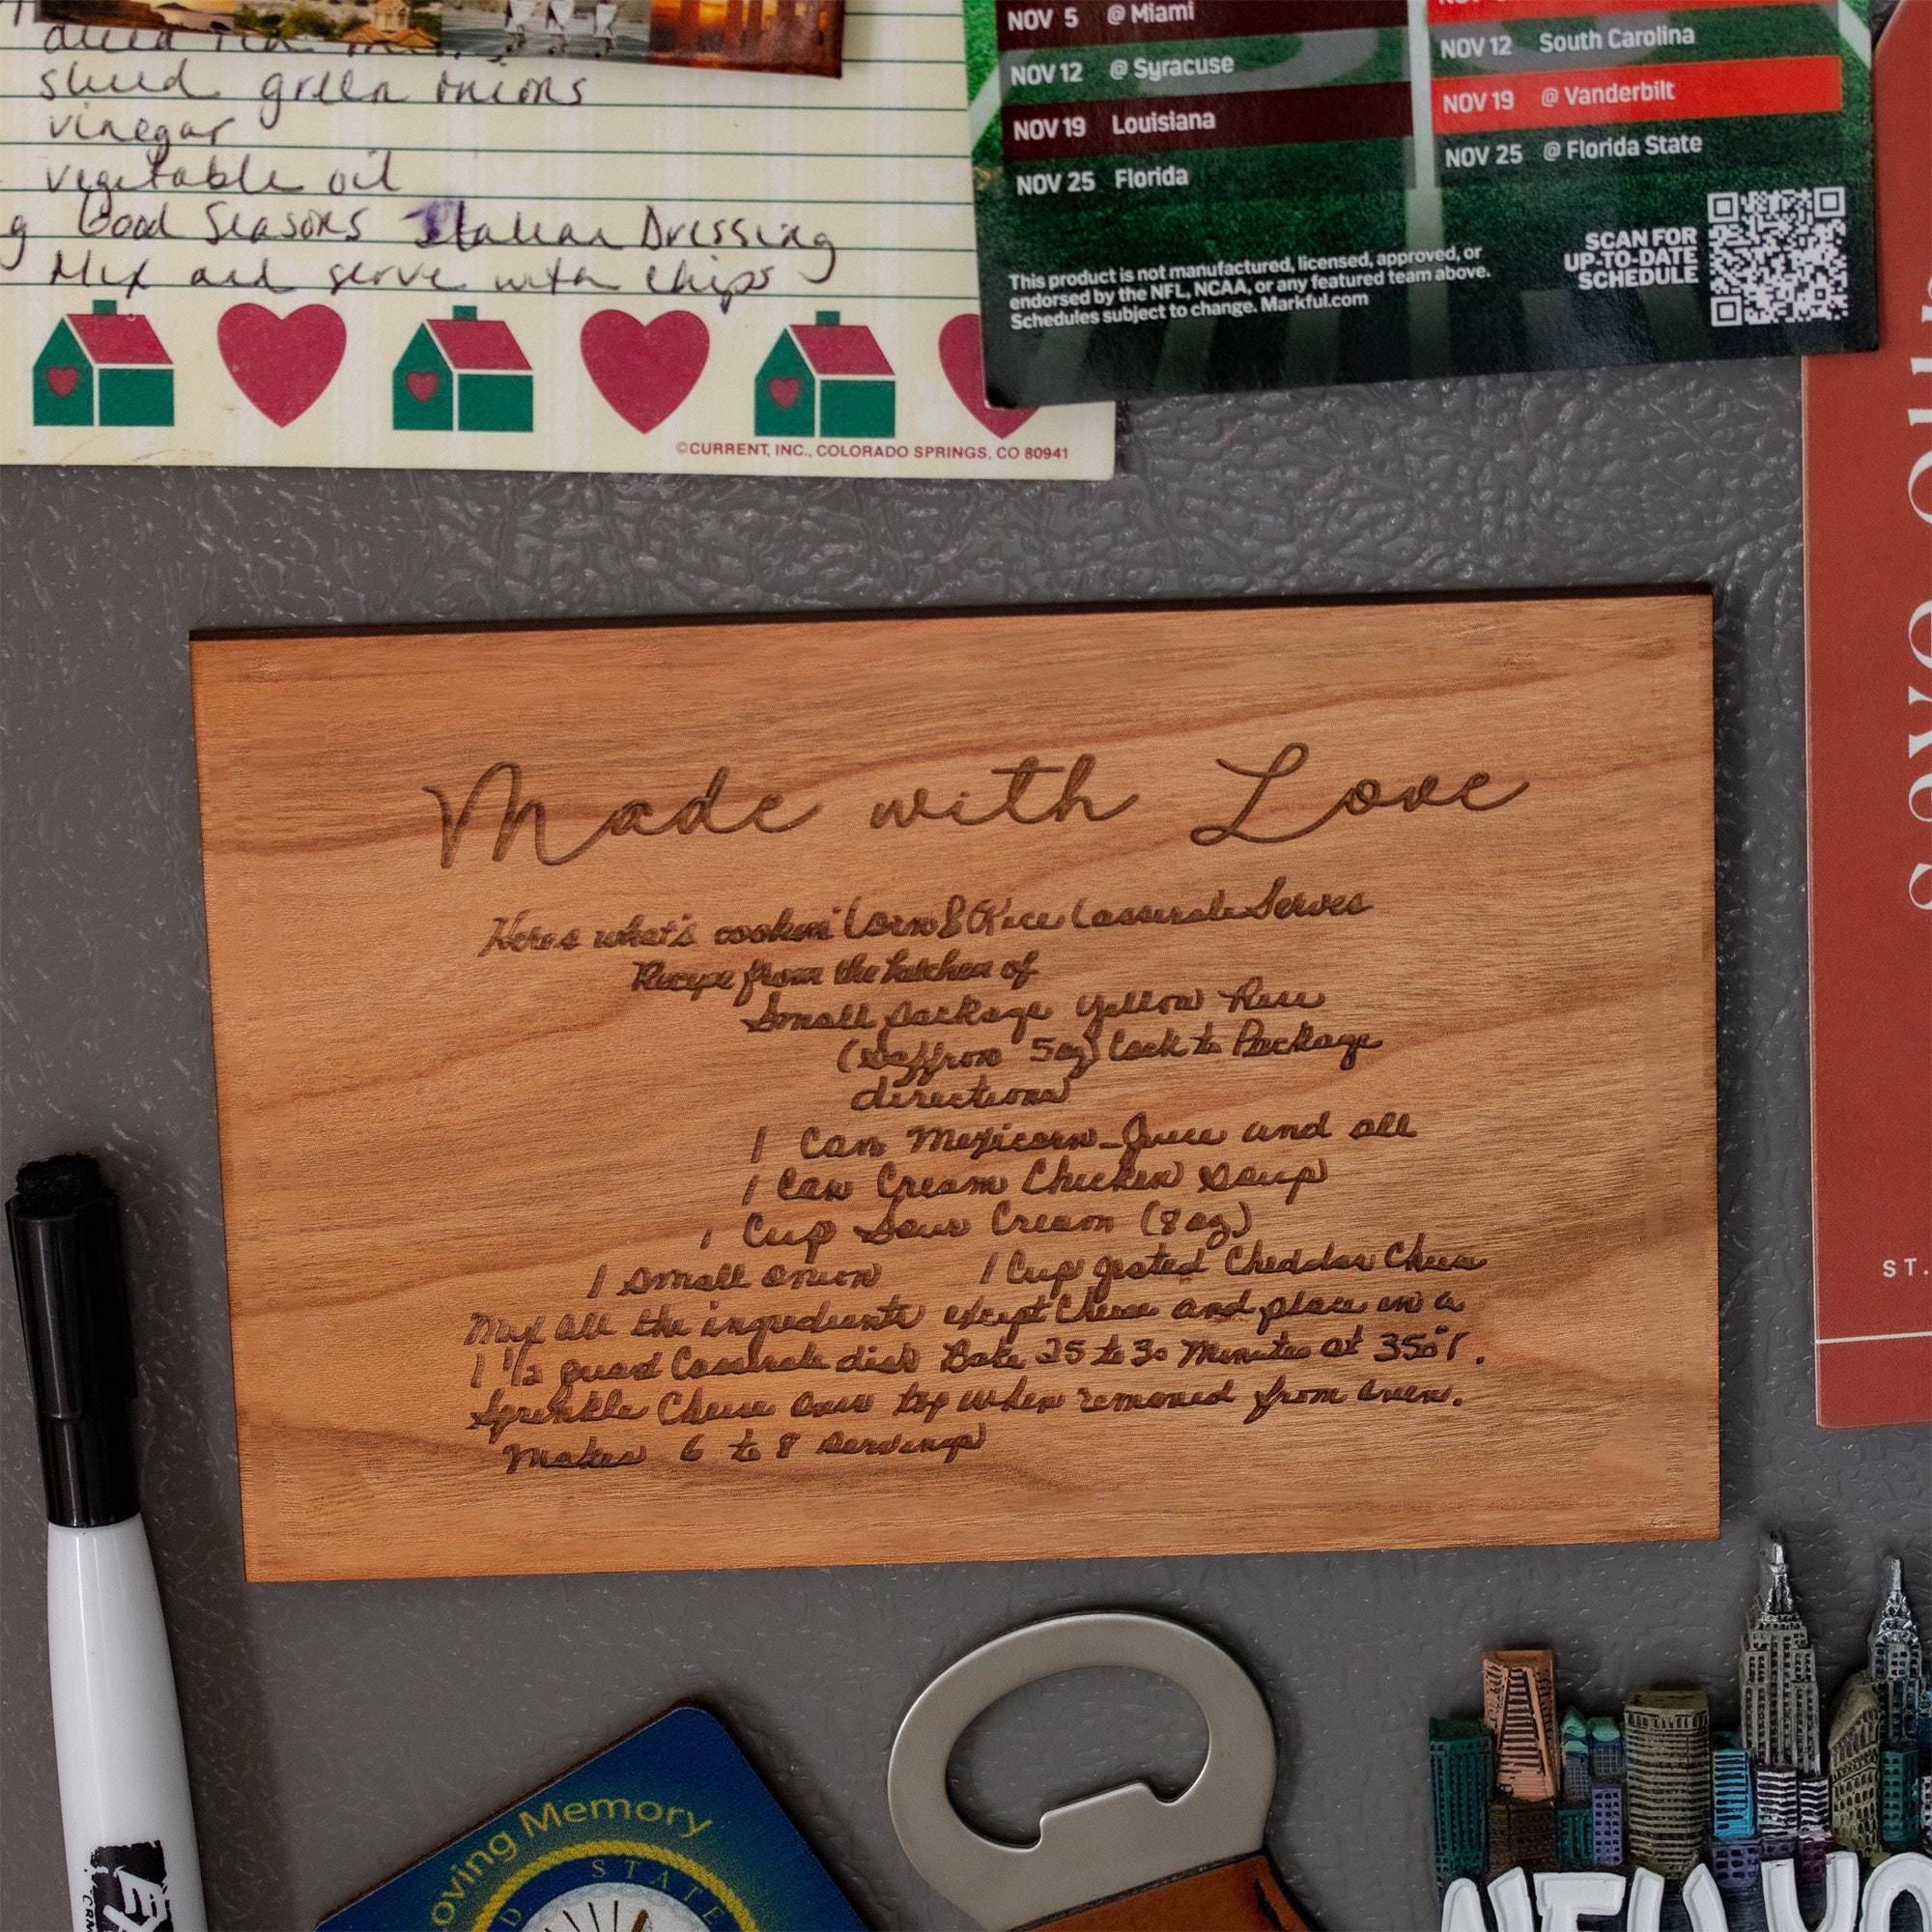 sliced green onions
vinegar
vegetable oil
Good Seasons Italian Dressing
Mix and serve with chips
©CURRENT, INC., COLORADO SPRINGS, CO 80941
NOV 5 @ Miami
NOV 12 @ Syracuse
NOV 19 Louisiana
NOV 25 Florida
NOV 12 South Carolina
NOV 19 @ Vanderbilt
NOV 25 @ Florida State
This product is not manufactured, licensed, approved, or
endorsed by the NFL, NCAA, or any featured team above.
Schedules subject to change. Markful.com
SCAN FOR
UP-TO-DATE
SCHEDULE
ST.
Made with Love
Here's what's cookin' Corn & Rice Casserole Serves
Recipe from the kitchen of
Small package yellow Rice
(Saffron 5oz) Cook to Package
directions
1 Can Mexicorn - Juice and all
1 Can Cream Chicken Soup
1 Cup Sour Cream (8 oz)
1 small onion 1 Cup grated Cheddar Cheese
Mix all the ingredients except Cheese and place in a
1 1/2 quart Casserole dish Bake 25 to 30 Minutes at 350°F.
Sprinkle Cheese over top when removed from oven.
Makes 6 to 8 servings
oving Memory
STATE
NEW YO